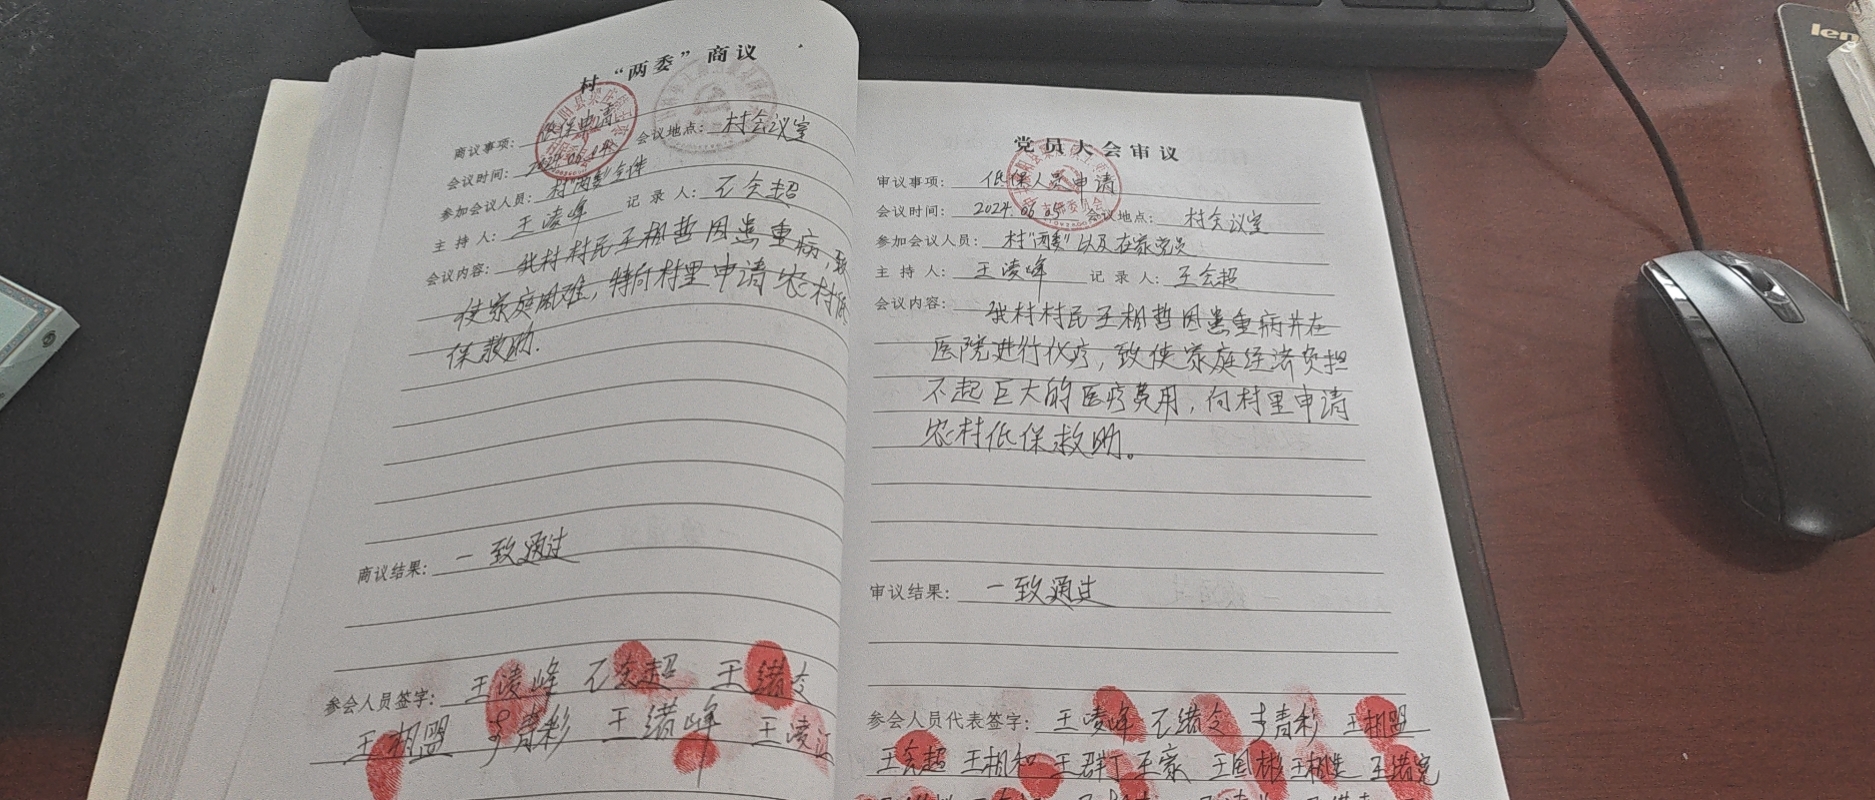 村“两委”商议
商议事项： 低保申请 会议地点： 村会议室
会议时间：
参加会议人员： 村“两委”全体
主 持 人： 王凌峰 记 录 人： 石会超
会议内容： 我村村民王相哲因患重病，致
使家庭困难，特向村里申请农村低
保救助.
商议结果： 一致通过
参会人员签字： 王凌峰 石会超 王绪
王相盟 李青彩 王绪峰 王凌江
党员大会审议
审议事项： 低保人员申请
会议时间： 2024.06.05 会议地点： 村会议室
参加会议人员： 村“两委”以及在家党员
主 持 人： 王凌峰 记 录 人： 王会超
会议内容： 我村村民王相哲因患重病并在
医院进行化疗，致使家庭经济负担
不起巨大的医疗费用，向村里申请
农村低保救助。
审议结果： 一致通过
参会人员代表签字： 王凌峰 石绪 李青彩 王相盟
王会超 王相和 王群 王家 王凤彬
len